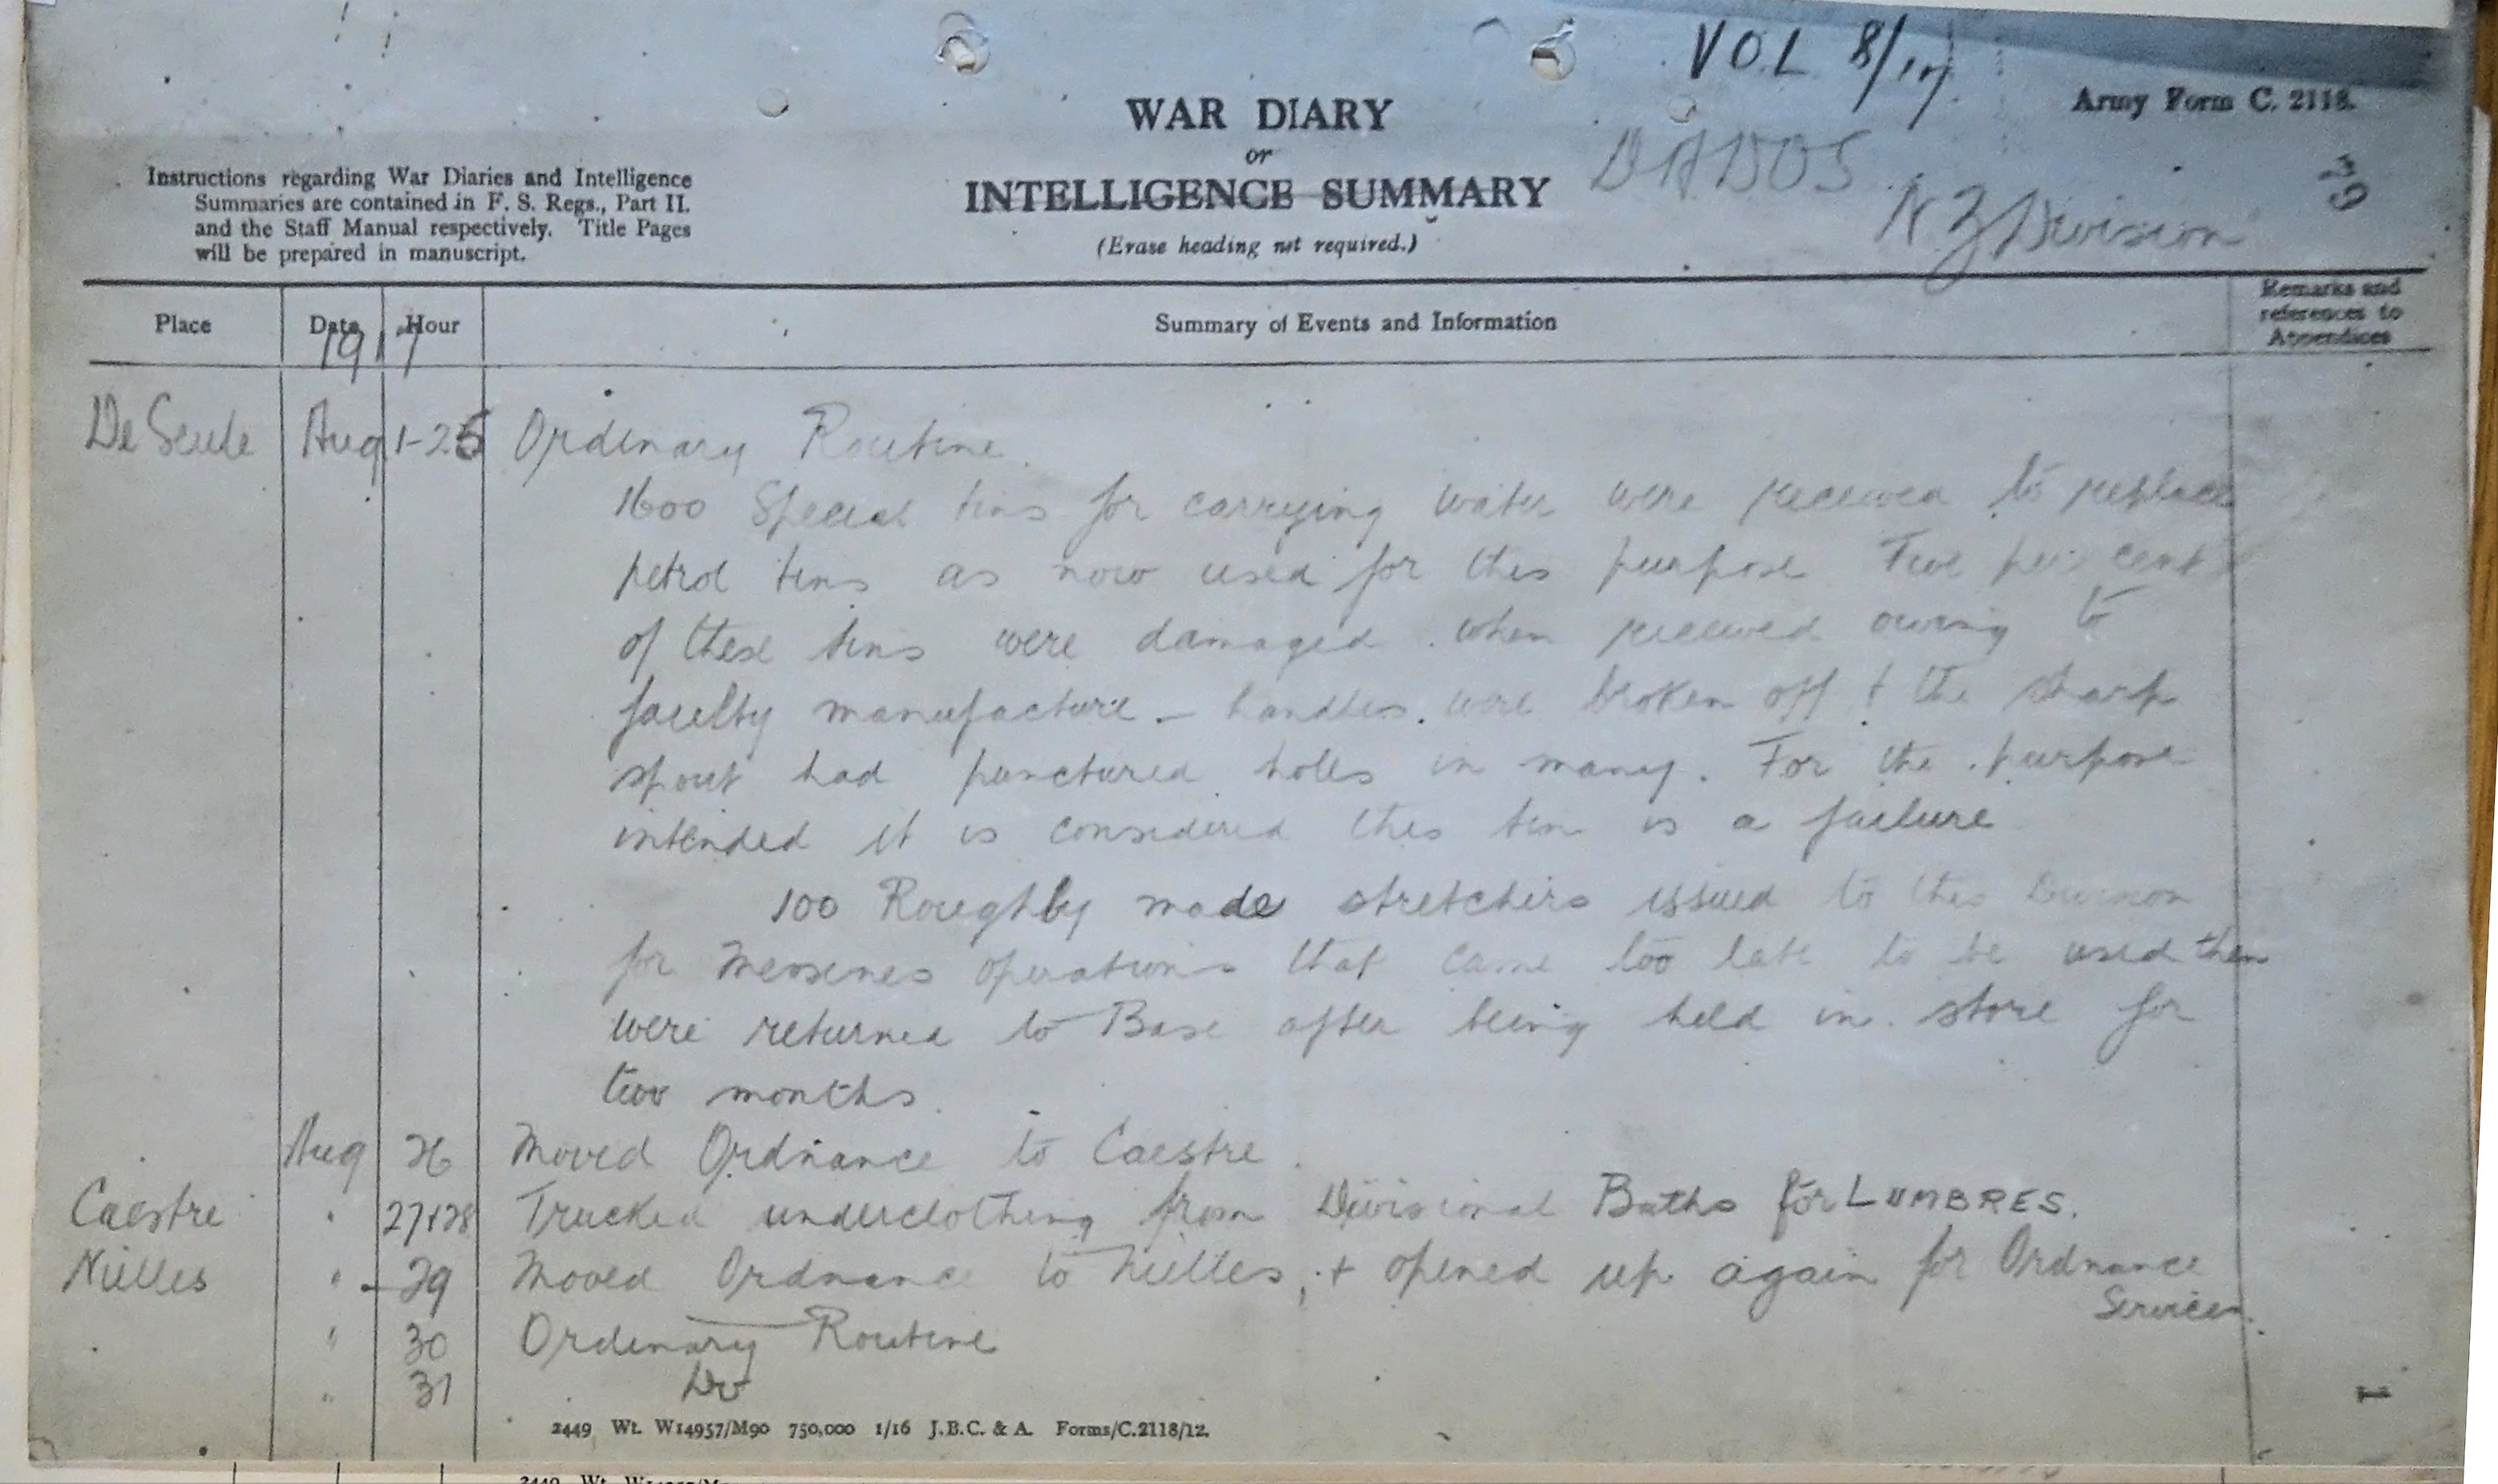 VOL 8/17
WAR DIARY
or
INTELLIGENCE SUMMARY
(Erase heading not required.)
Army Form C. 2118.
DADOS
N Z Division
Instructions regarding War Diaries and Intelligence
Summaries are contained in F. S. Regs., Part II.
and the Staff Manual respectively. Title Pages
will be prepared in manuscript.
Place Date Hour Summary of Events and Information Remarks and references to Appendices
1917
De Seule Aug 1-25 Ordinary Routine.
1600 Special tins for carrying water were received to replace
petrol tins as now used for this purpose Five per cent
of these tins were damaged when received owing to
faulty manufacture - handles were broken off & the sharp
spout had punctured holes in many. For the purpose
intended it is considered this tin is a failure
100 Roughly made stretchers issued to this Division
for Messines operations that came too late to be used then
were returned to Base after being held in store for
two months.
Aug 26 Moved Ordnance to Caestre.
Caestre " 27+28 Trucked underclothing from Divisional Baths for LUMBRES.
Nielles " 29 Moved Ordnance to Nielles, + opened up again for Ordnance
Services.
" 30 Ordinary Routine
" 31 Do
2449 Wt. W14957/M90 750,000 1/16 J.B.C. & A. Forms/C.2118/12.
1